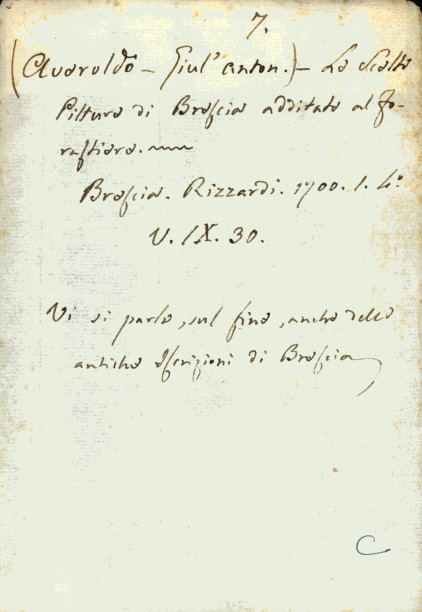 7.
(Averoldo - Giul' Anton.) - Le Scelte
Pitture di Brescia additate al fo-
rastiere.
Brescia. Rizzardi. 1700. 1. 4.º
V. IX. 30.
Vi si parla, sul fine, anche delle
antiche Iscrizioni di Brescia
C